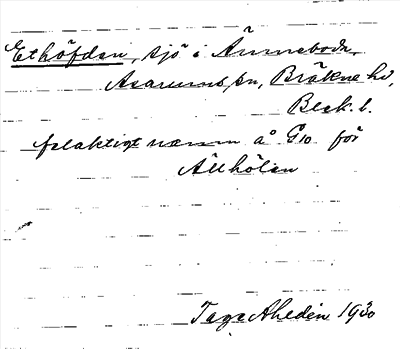 Ethöfden, sjö i Ämmeboda,
Asarums sn, Bräkne hd,
Blek. l.
felaktigt namn å G10 för
Ällhölen
Tage Ahldén 1930